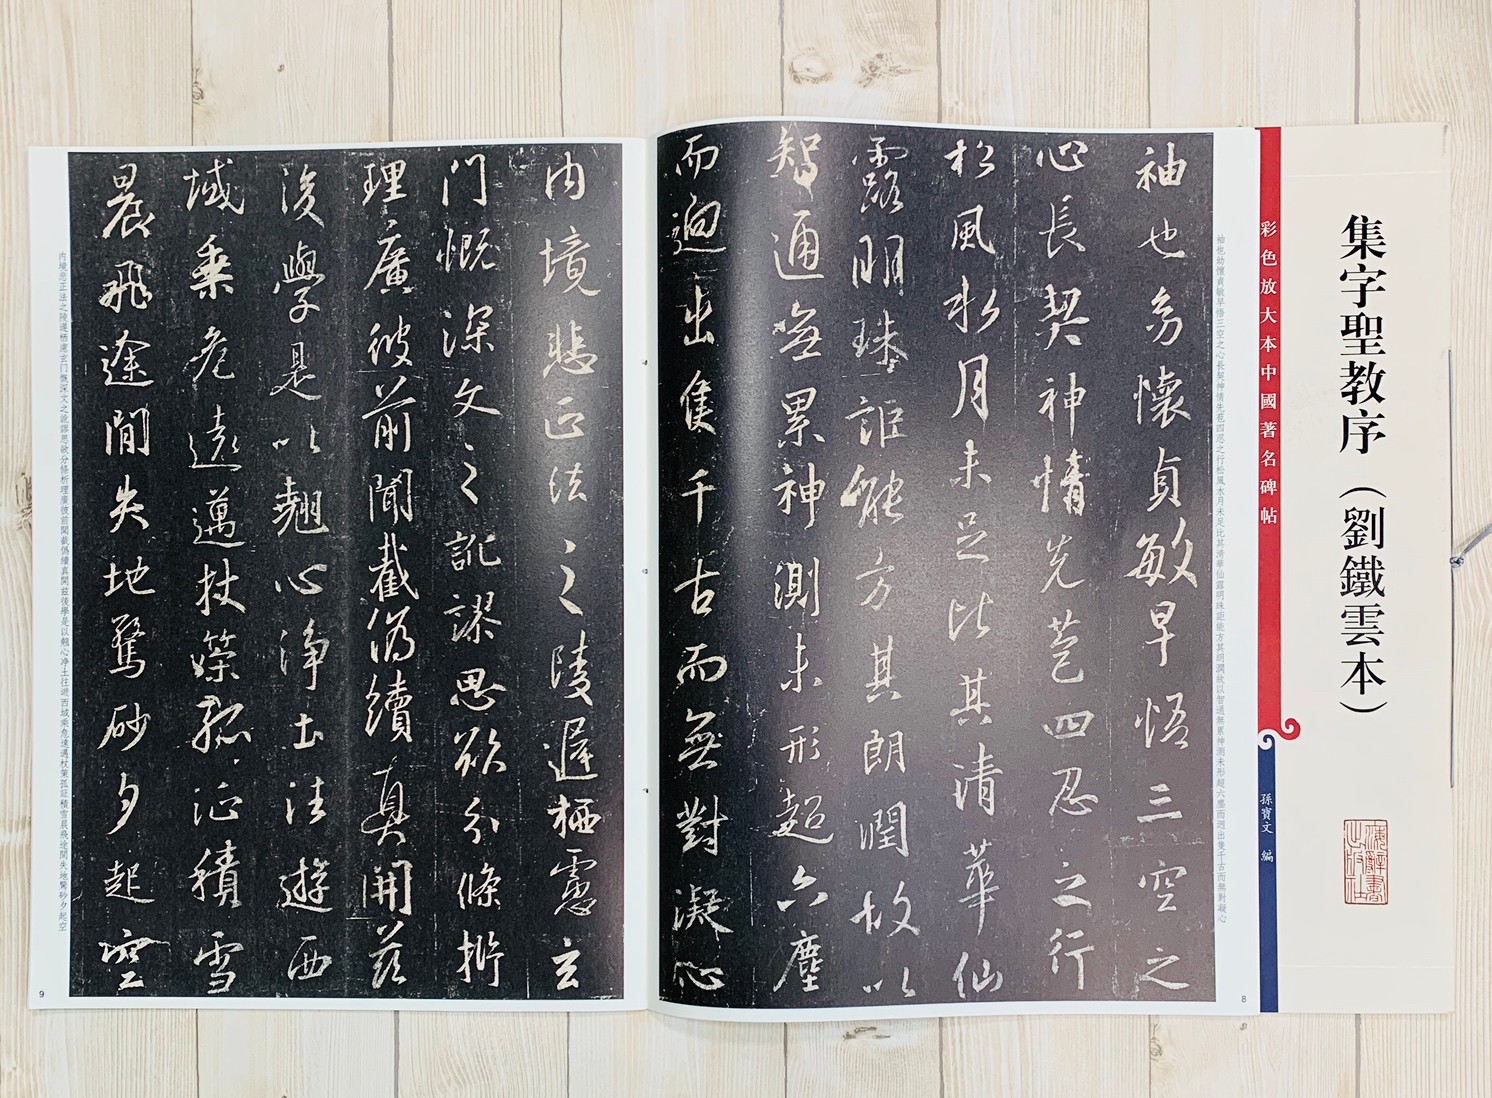 集字聖教序（劉鐵雲本）
彩色放大本中國著名碑帖
孫寶文 編
袖也幼懷貞敏早悟三空之心長契神情先苞四忍之行松風水月未足比其清華仙露明珠詎能方其朗潤故以智通無累神測未形超六塵而迥出隻千古而無對凝心
袖也幼懷貞敏早悟三空之
心長契神情先苞四忍之行
松風水月未足比其清華仙
露明珠詎能方其朗潤故以
智通無累神測未形超六塵
而迥出隻千古而無對凝心
8
內境悲正法之陵遲栖慮玄
門慨深文之訛謬思欲分條析
理廣彼前聞截偽續真開茲
後學是以翹心淨土法遊西
域乘危遠邁杖策孤征積雪
晨飛途閒失地驚砂夕起空
內境悲正法之陵遲栖慮玄門慨深文之訛謬思欲分條析理廣彼前聞截偽續真開茲後學是以翹心淨土往遊西域乘危遠邁杖策孤征積雪晨飛途閒失地驚砂夕起空
9